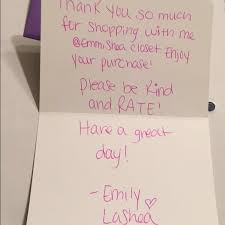 Thank you so much
for shopping with me
@EmmiShea closet Enjoy
your purchase!
Please be kind
and RATE!
Have a great
day!
- Emily
Lashea